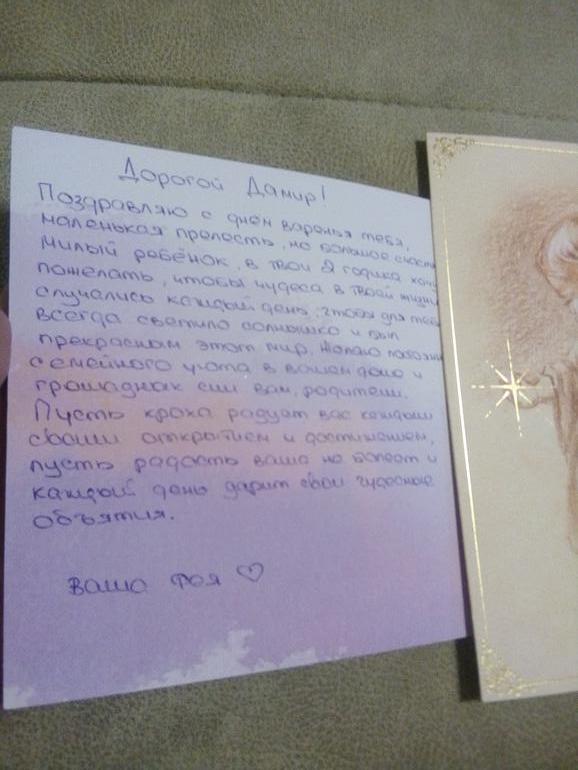 Дорогой Дамир!
Поздравляю с днём варенья тебя,
маленькая прелесть, но большое счастье
милый ребёнок, в твои 2 годика хочу
пожелать, чтобы чудеса в твоей жизни
случались каждый день, чтобы для тебя
всегда светило солнышко и был
прекрасным этот мир. Желаю
семейного уюта в вашем доме и
громадных сил вам, родители.
Пусть кроха радует вас каждым
своим открытием и достижением,
пусть радость ваша не болеет и
каждый день дарит свои чудесные
объятия.
ваша Фея